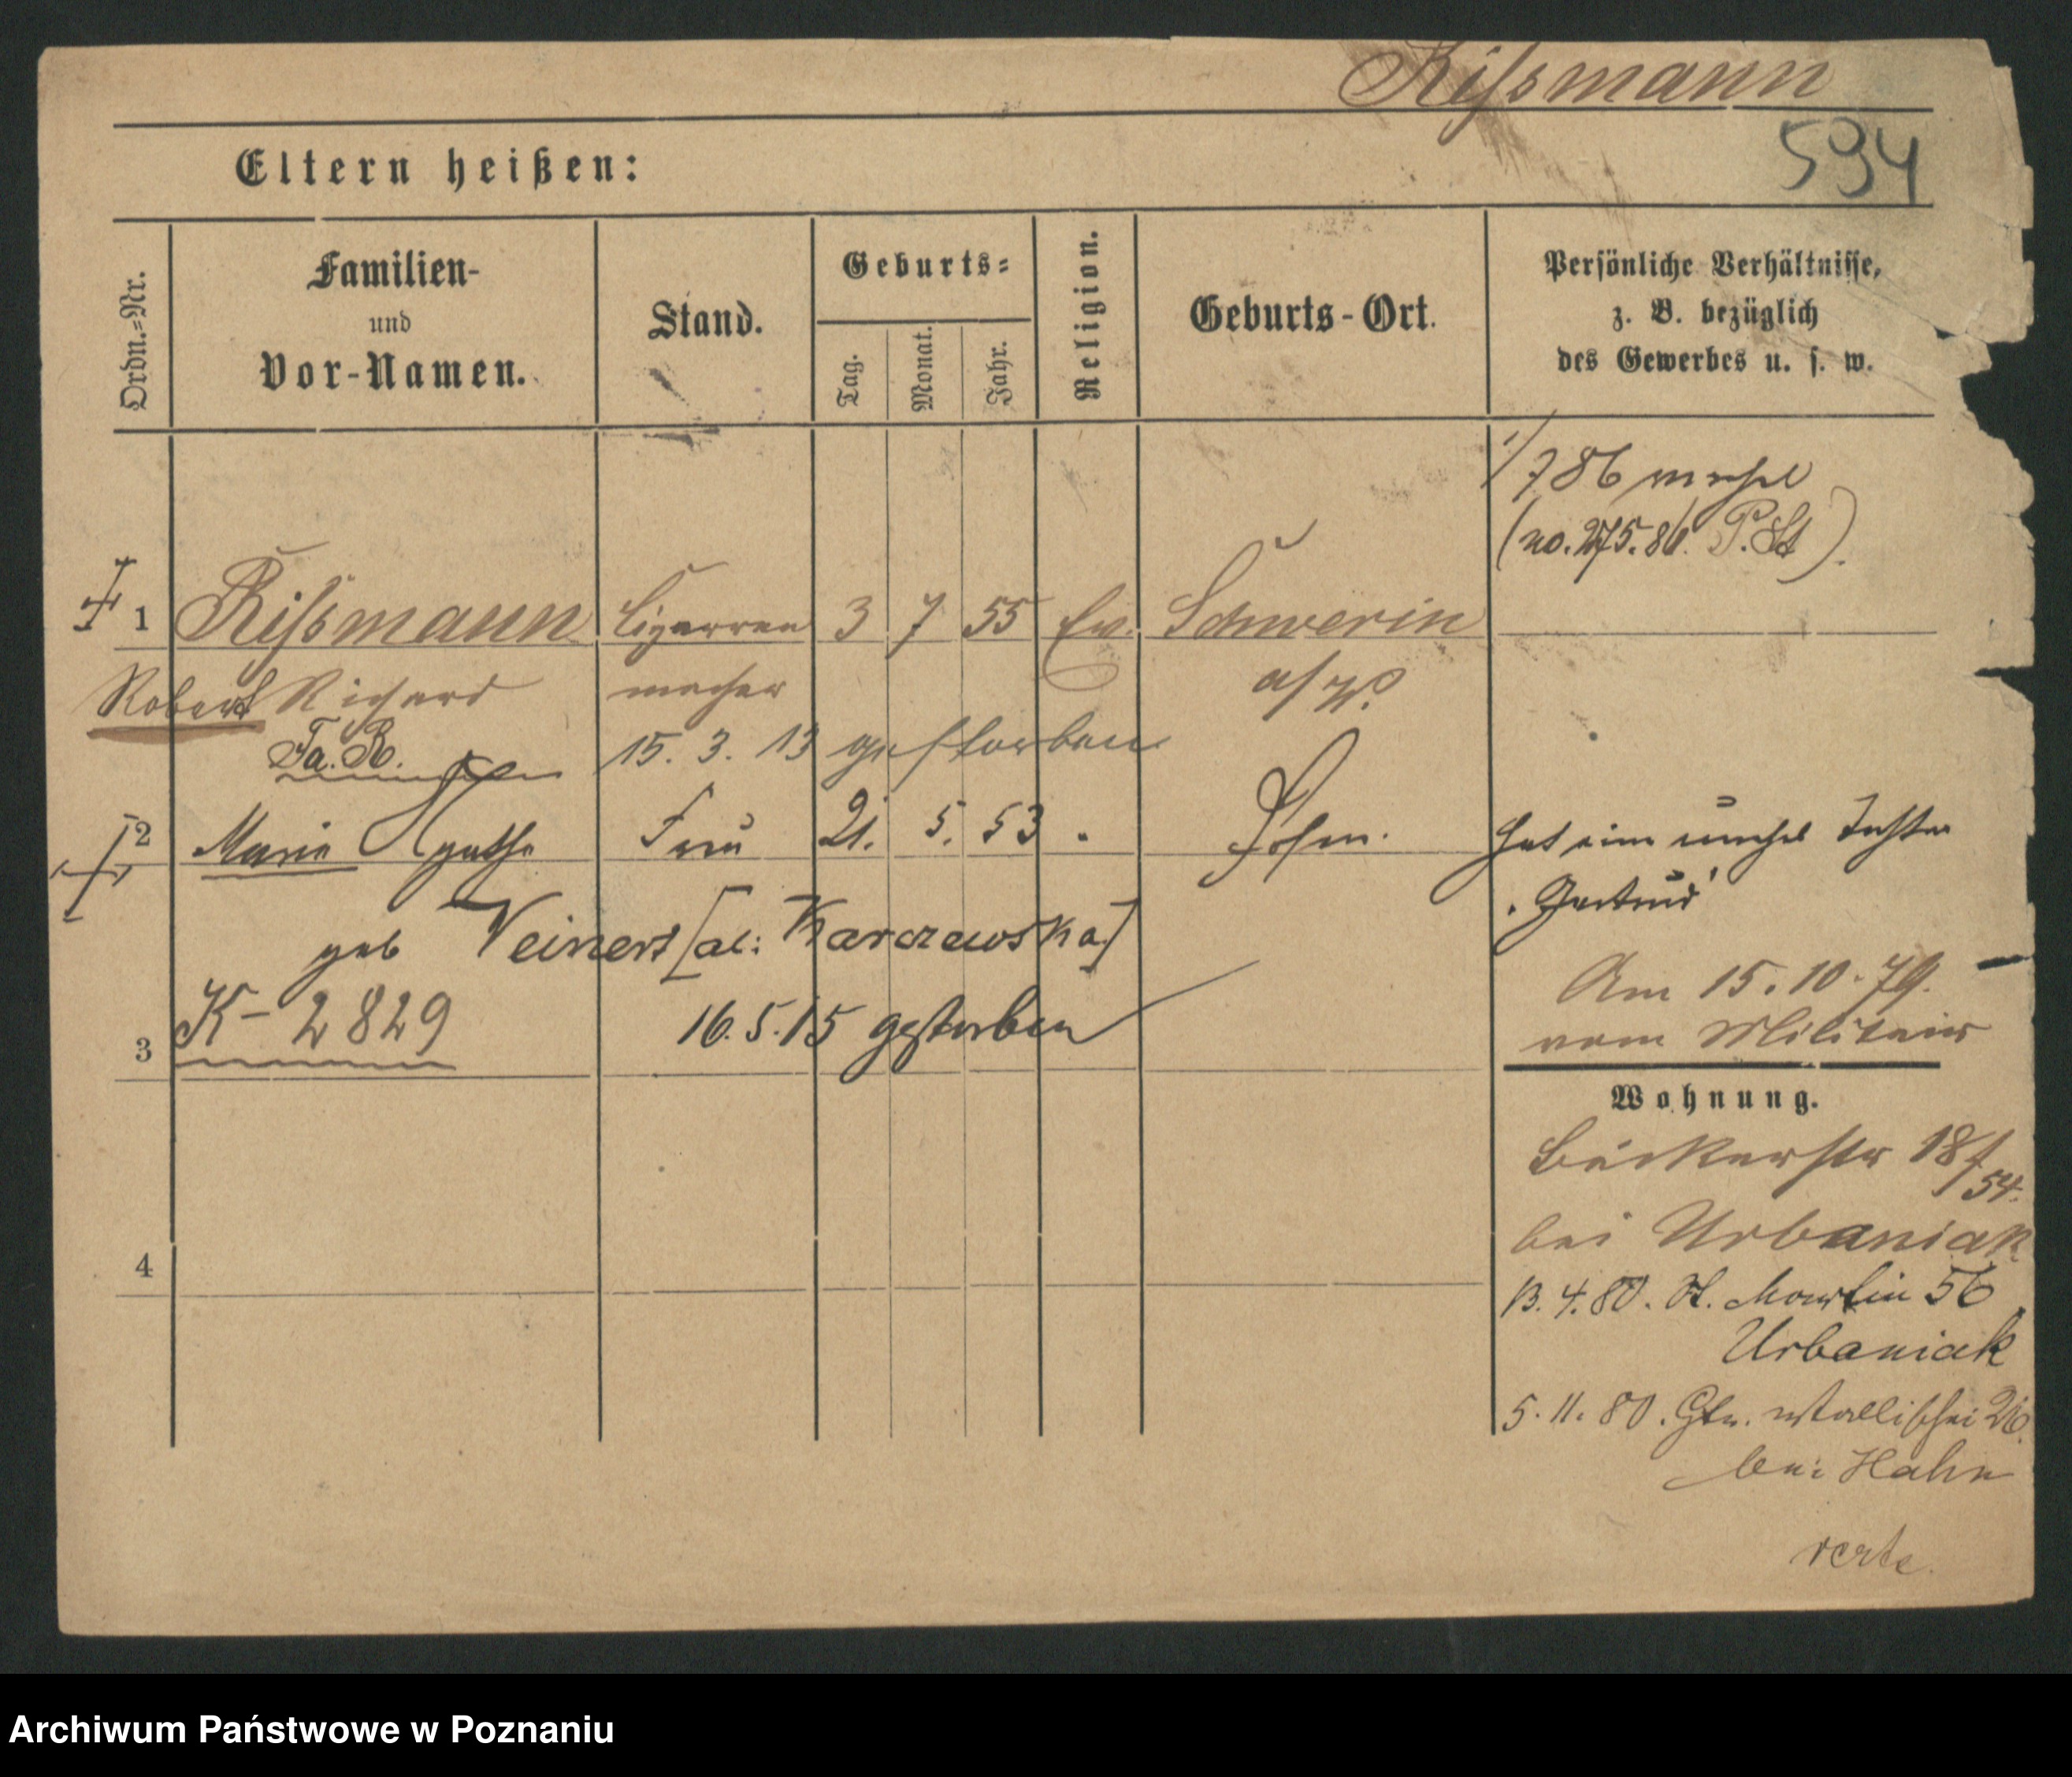 Rißmann
594
Eltern heißen:
Ordn.=Nr.
Familien- und Vor-Namen.
Stand.
Geburts=
Tag.
Monat.
Jahr.
Religion.
Geburts-Ort.
Persönliche Verhältnisse,
z. B. bezüglich
des Gewerbes u. s. w.
1/7 86
(no. 275. 86. P. St).
1 Rißmann Cigarren 3 7 55 Ev. Schwerin
Robert Richard macher a/W.
Fa. R. 15. 3. 13 gestorben
2 Marie Agathe Frau 21. 5. 53 Posen. hat eine unehel Tochter
"Gertrud"
geb Veinert [al: Karczewska]
Am 15. 10. 79.
vom Militair
3 K- 2829 16. 5. 15 gestorben
Wohnung.
Bäckerstr 18/54.
bei Urbaniak
4
13. 4. 80. St. Martin 56
Urbaniak
5. 11. 80. Wallischei 26.
bei Hahn
verte.
Archiwum Państwowe w Poznaniu